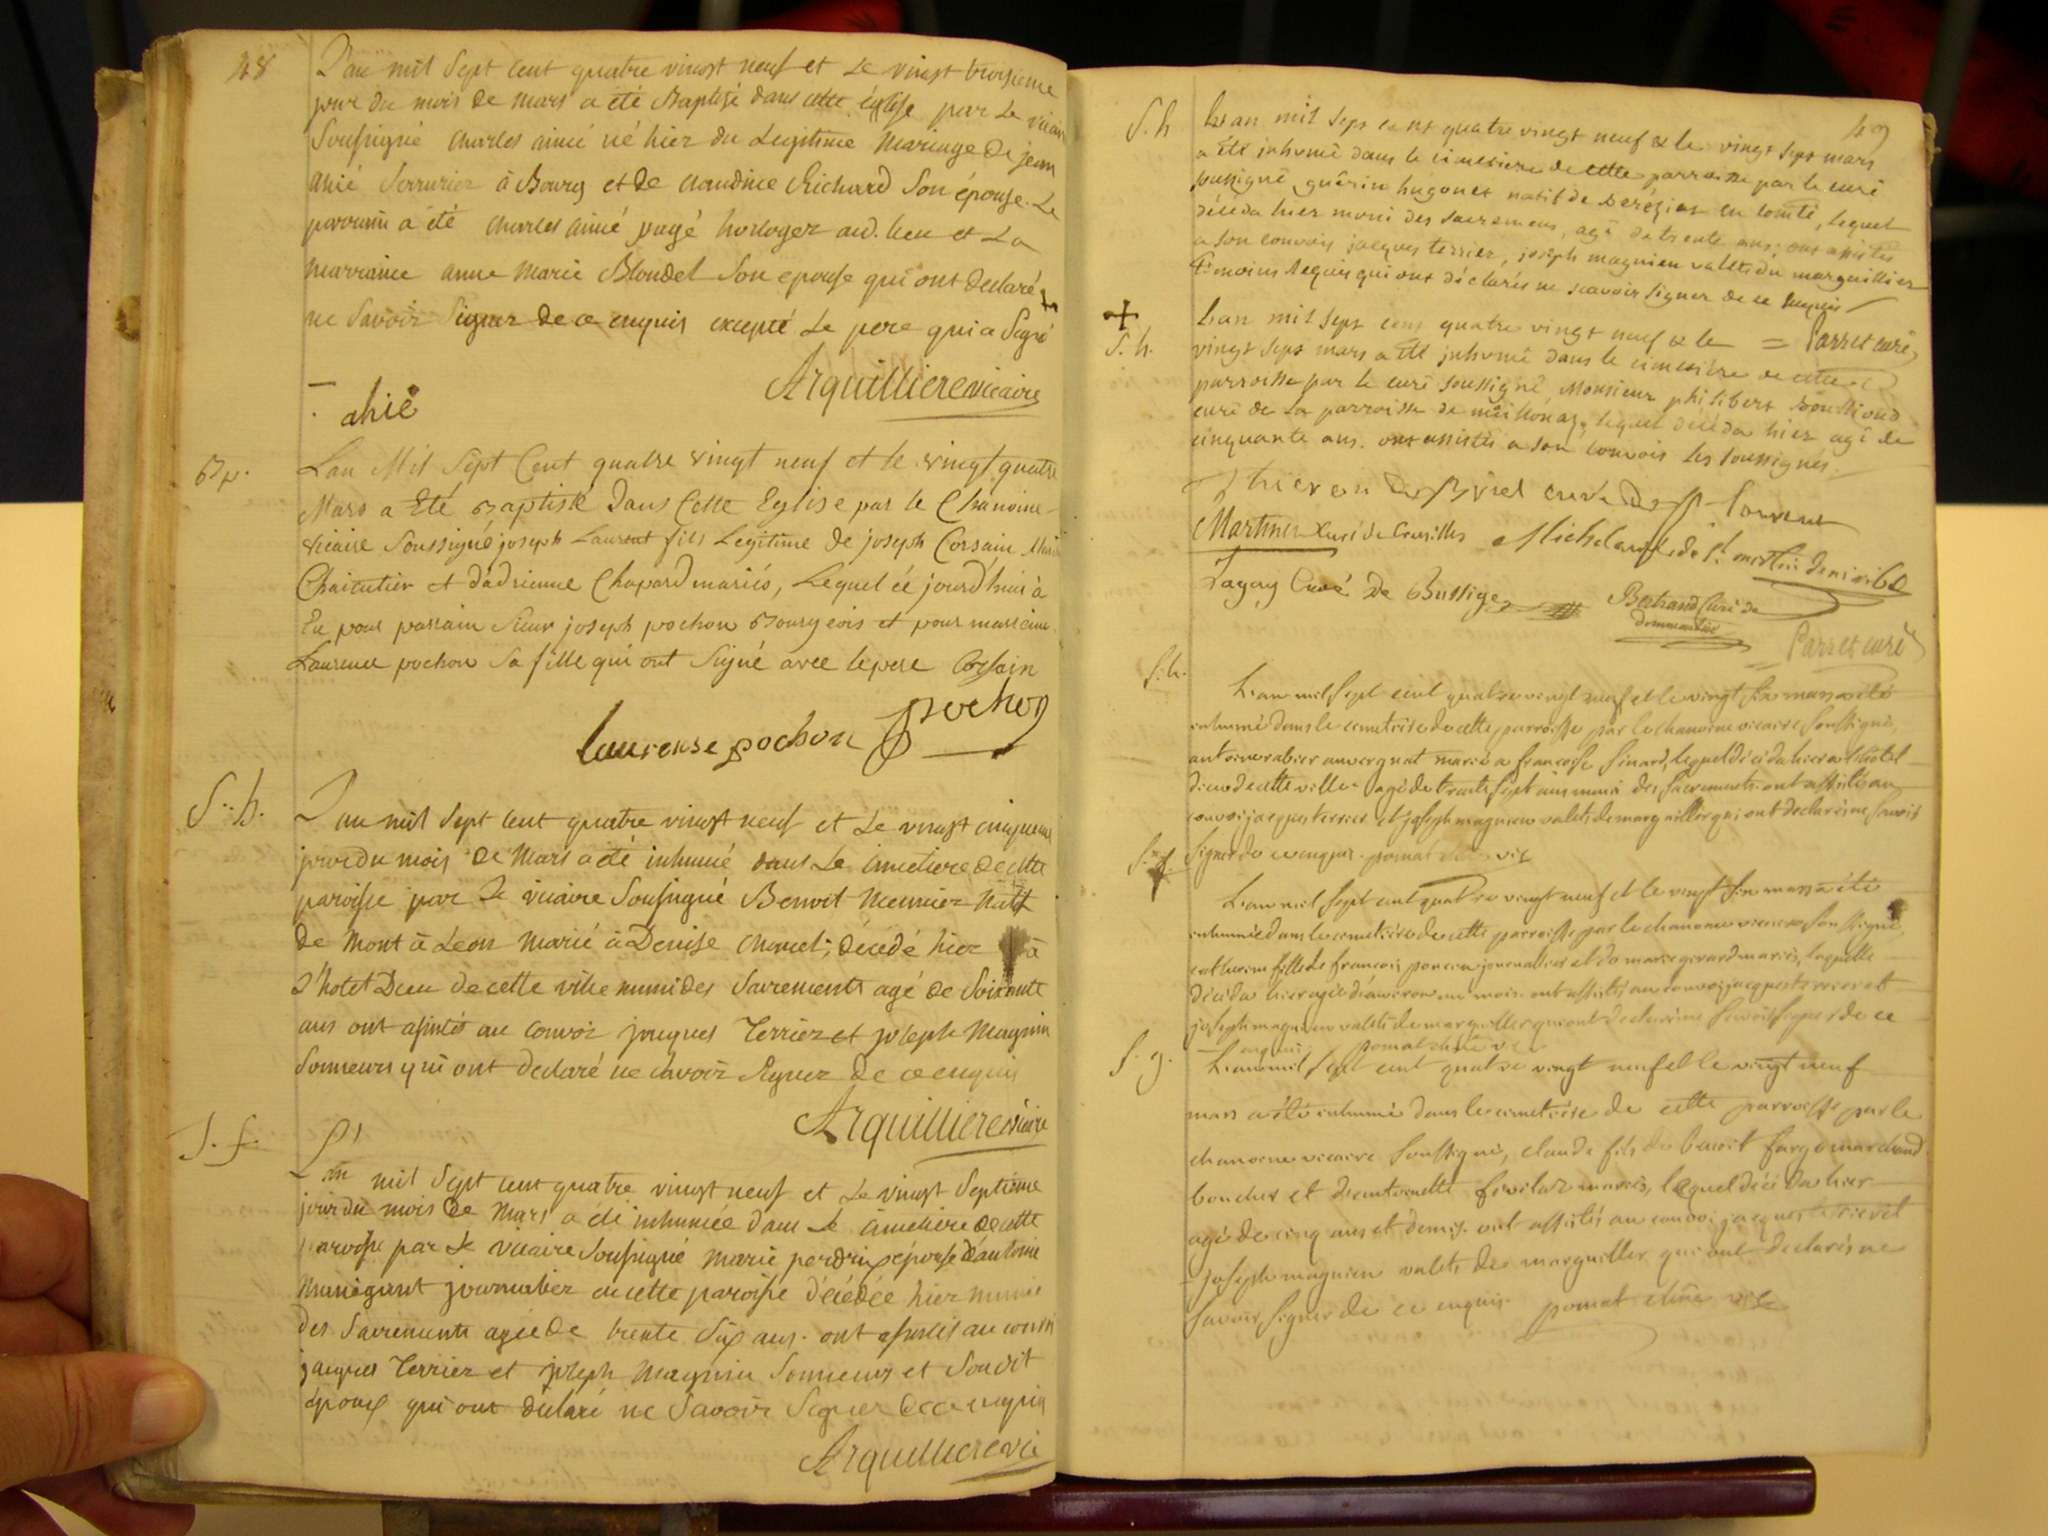 48
L'an mil sept cent quatre vingt neuf et Le vingt troisieme
jour du mois de mars a été Baptisé dans cette église par Le vicaire
Soussigné charles aimé né hier du Legitime Mariage de jean
ahié Serrurier à Bourg et de claudine Richard Son épouse. Le
parrain a été charles aimé pagé horloger aud. lieu et La
marraine anne Marie Blondel Son epouse qui ont declaré
ne Savoir Signer de ce enquis excepté Le pere qui a Signé
Arquilliere vicaire
ahié
Bp.
L'an Mil Sept Cent quatre vingt neuf et le vingt quatre
Mars a Eté Baptisé Dans Cette Eglise par le Chanoine
vicaire Soussigné joseph Laurent fils Legitime de joseph Corsain
Chaicutier et d'adrienne Chapard mariés, Lequel ce jourd'hui à
Eu pour parrain Sieur joseph pochon Bourgeois et pour marraine
Laurence pochon Sa fille qui ont Signé avec le pere Corsain
laurense pochon pochon
S. h.
L'an mil sept cent quatre vingt neuf et Le vingt cinquieme
jour du mois de Mars a été inhumé dans Le cimetiere de cette
paroisse par Le vicaire Soussigné Benoit Meunier Natif
de Mont à Leon Marié à Denise chanel; décédé hier à
L'hotel Dieu de cette ville muni des Sacrements agé de Soixante
ans ont assistés au convoi jacques Terrier et joseph Magnin
Sonneurs qui ont declaré ne Savoir Signer de ce enquis
Arquilliere vicaire
S. f.
L'an mil sept cent quatre vingt neuf et Le vingt Septieme
jour du mois de Mars a été inhumée dans Le cimetiere de cette
paroisse par Le vicaire Soussigné Marie perdrix épouse d'antoine
journalier en cette paroisse décédée hier munie
des Sacrements agée de trente Six ans. ont assistés au convoi
jacques Terrier et joseph Magnin Sonneurs et Son dit
époux qui ont déclaré ne Savoir Signer de ce enquis
Arquilliere vic
49
S. h
L'an mil sept cent quatre vingt neuf & le vingt sept mars
a été inhumé dans le cimetiere de cette parroisse par le curé
soussigné guérin hugonet natif de en comté, lequel
décéda hier muni des sacremens, agé de trente ans; ont assistés
a son convoi jacques terrier, joseph magnien valets du marguillier
témoins requis qui ont déclarés ne scavoir signer de ce enquis
= Parret curé
S. h.
L'an mil sept cent quatre vingt neuf & le
vingt sept mars a été inhumé dans le cimetière de cette
parroisse par le curé soussigné Monsieur philibert
curé de la parroisse de meillonaz, lequel décéda hier agé de
cinquante ans. ont assistés a son convois les soussignés.
curé de St Laurent
Martinet Curé de Cruzilles
Tagay Curé De Buffiges Bertrand Curé de
Parret curé
S. h.
L'an mil sept cent quatre vingt neuf et le vingt six mars a été
inhumé dans le cimetiere de cette parroisse par le chanoine vicaire soussigné,
antoine rabier auvergnat marié a francoise Sinard, lequel décéda hier a l'hôtel
dieu de cette ville agé de trente sept ans muni des sacrements. ont assistés au
convoi jacques terrier et joseph magnien valets de marguillier qui ont declarés ne savoir
signer de ce enquis. pomat vic
L'an mil sept cent quatre vingt neuf et le vingt six mars a été
inhumée dans le cimetiere de cette parroisse par le chanoine vicaire soussigné,
catherine fille de francois poncin journallier et de marie gerard mariés, laquelle
décéda hier agée d'environ un mois. ont assistés au convoi jacques terrier et
joseph magnien valets de marguillier qui ont declarés ne savoir signer de ce
enquis. pomat chne vic
S. g.
L'an mil sept cent quatre vingt neuf et le vingt neuf
mars a été inhumé dans le cimetiere de cette parroisse par le
chanoine vicaire soussigné, claude fils de benoit farge marchand
boucher et d'antoinette mariés, lequel décéda hier
agé de cinq ans et demi. ont assistés au convoi jacques terrier et
joseph magnien valets de marguillier qui ont declarés ne
savoir signer de ce enquis. pomat chne vic